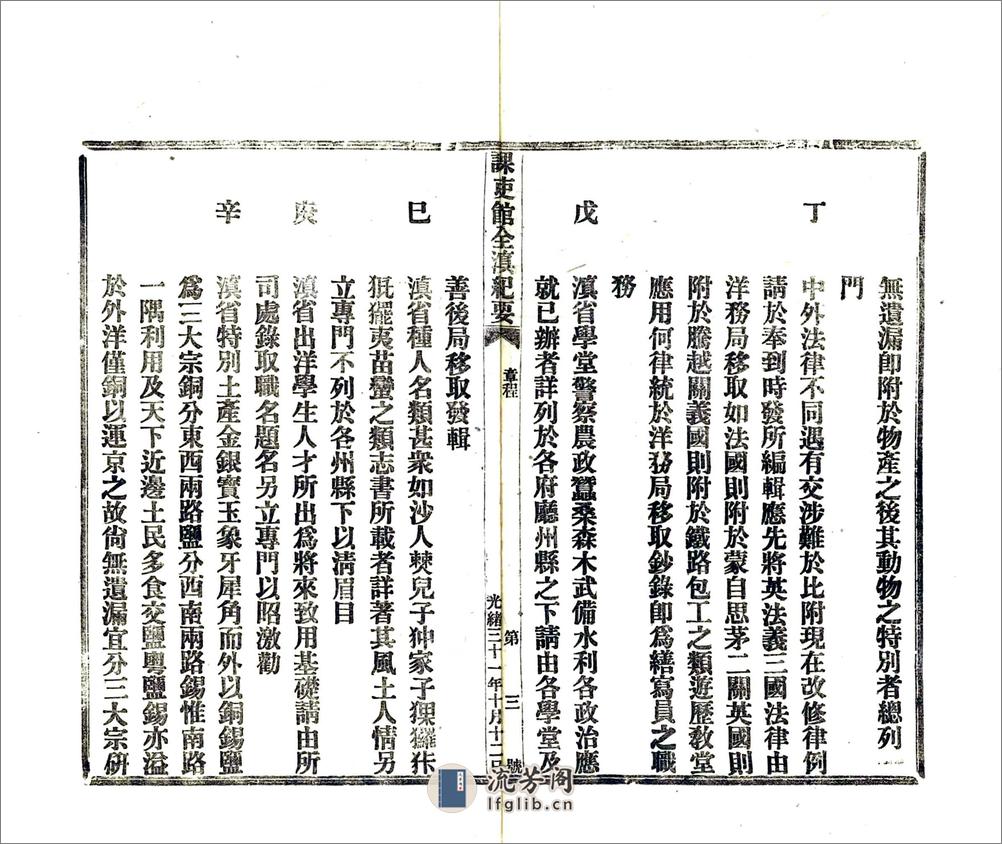 無遺漏卽附於物產之後其動物之特別者總列一
門
丁
中外法律不同遇有交涉難於比附現在改修律例
請於奉到時發所編輯應先將英法義三國法律由
洋務局移取如法國則附於蒙自思茅二關英國則
附於騰越關義國則附於鐵路包工之類遊歷敎堂
應用何律統於洋務局移取鈔錄卽爲繕寫員之職
務
戊
滇省學堂警察農政蠶桑森木武備水利各政治應
就已辦者詳列於各府廳州縣之下請由各學堂及
課吏館全滇紀要
章程
第三號
光緒三十一年十月十二日
善後局移取發輯
巳
滇省種人名類甚衆如沙人僰兒子狆家子猓玀㹻
猑擺夷苗蠻之類志書所載者詳著其風土人情另
立專門不列於各州縣下以淸眉目
庚
滇省出洋學生人才所出爲將來致用基礎請由所
司處錄取職名題名另立專門以昭激勸
辛
滇省特別土產金銀寶玉象牙犀角而外以銅錫鹽
爲三大宗銅分東西兩路鹽分西南兩路錫惟南路
一隅利用及天下近邊土民多食交鹽粵鹽錫亦溢
於外洋僅銅以運京之故尙無遺漏宜分三大宗硏
流芳阁
lfglib.cn